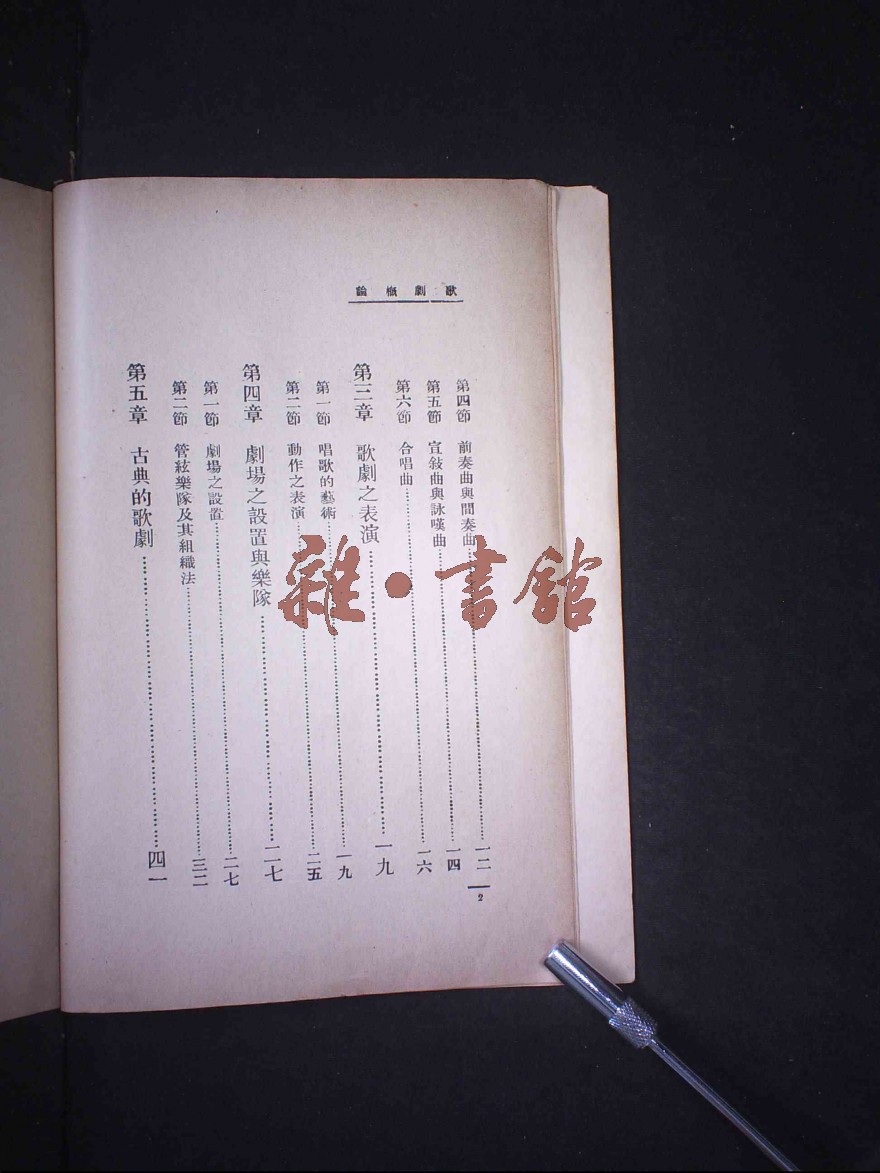 歌劇概論
第四節　前奏曲與間奏曲…………一二
第五節　宣敍曲與詠嘆曲…………一四
第六節　合唱曲…………一六
第三章　歌劇之表演…………一九
第一節　唱歌的藝術…………一九
第二節　動作之表演…………二五
第四章　劇場之設置與樂隊…………二七
第一節　劇場之設置…………二七
第二節　管絃樂隊及其組織法…………三二
第五章　古典的歌劇…………四一
2
雜·書館